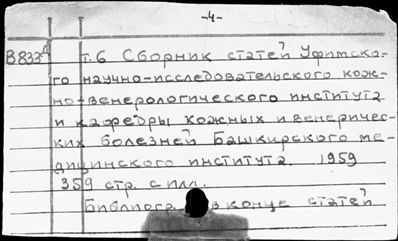 -4-
В833д т.6 Сборник статей Уфимско-
го научно-исследовательского кож-
но-венерологического института
и кафедры кожных и венеричес-
ких болезней Башкирского ме-
дицинского института. 1959
359 стр. с илл.
в конце статей